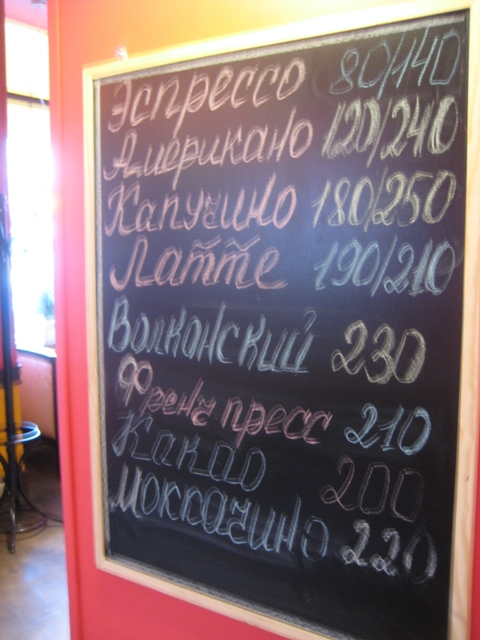 Эспрессо 80/140
Американо 120/240
Капучино 180/250
Латте 190/210
Волконский 230
Френч пресс 210
Какао 200
Моккачино 220